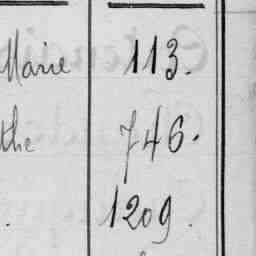 Marie 113.
the 746.
. 1209.